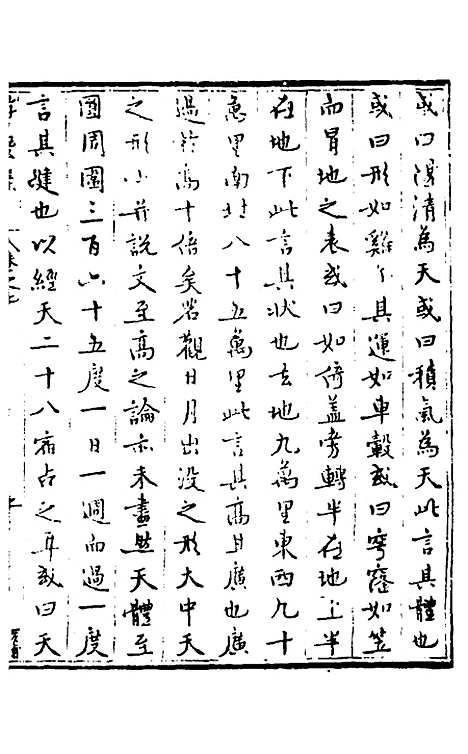 或曰陽清為天或曰積氣為天此言其體也
或曰形如雞子其運如車轂或曰穹窿如笠
而冒地之表或曰如倚蓋旁轉半在地上半
在地下此言其狀也去地九萬里東西九十
萬里南北八十五萬里此言其高且廣也廣
過於高十倍矣若觀日月出沒之形大中天
之形小并說文至高之論亦未盡然天體至
圓周圍三百六十五度一日一週而過一度
言其健也以經天二十八宿占之耳或曰天